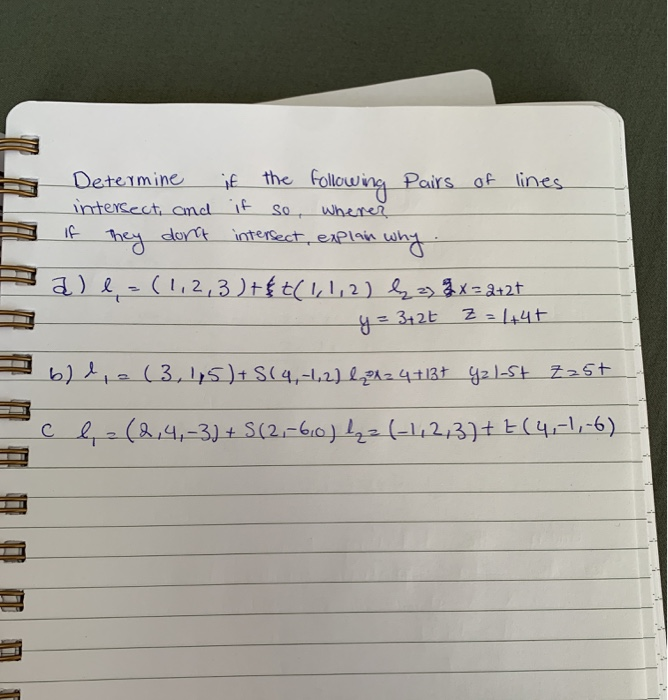 Determine if the following Pairs of lines
intersect, and if so, where?
If they don't intersect, explain why.
a) l₁ = (1,2,3)+ t(1,1,2) l₂ => x = 2+2t
y = 3+2t z = 1+4t
b) l₁ = (3,1,5)+ S(4,-1,2) l₂=>x= 4+13t y=1-5t z=5t
c l₁ = (2,4,-3)+ S(2,-6,0) l₂= (-1,2,3)+ t(4,-1,-6)